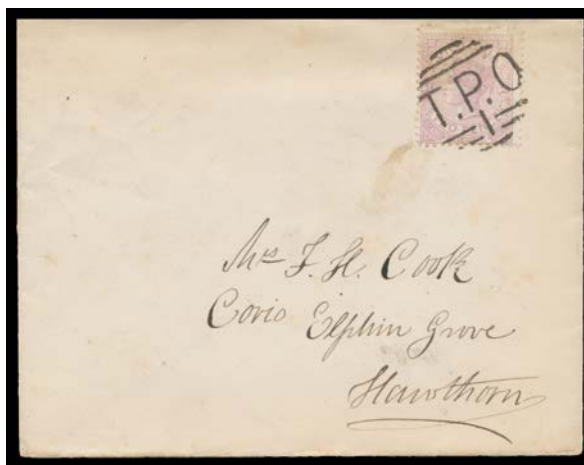 T.P.O
1
Mrs F. H. Cook
Corio Elphin Grove
Hawthorn